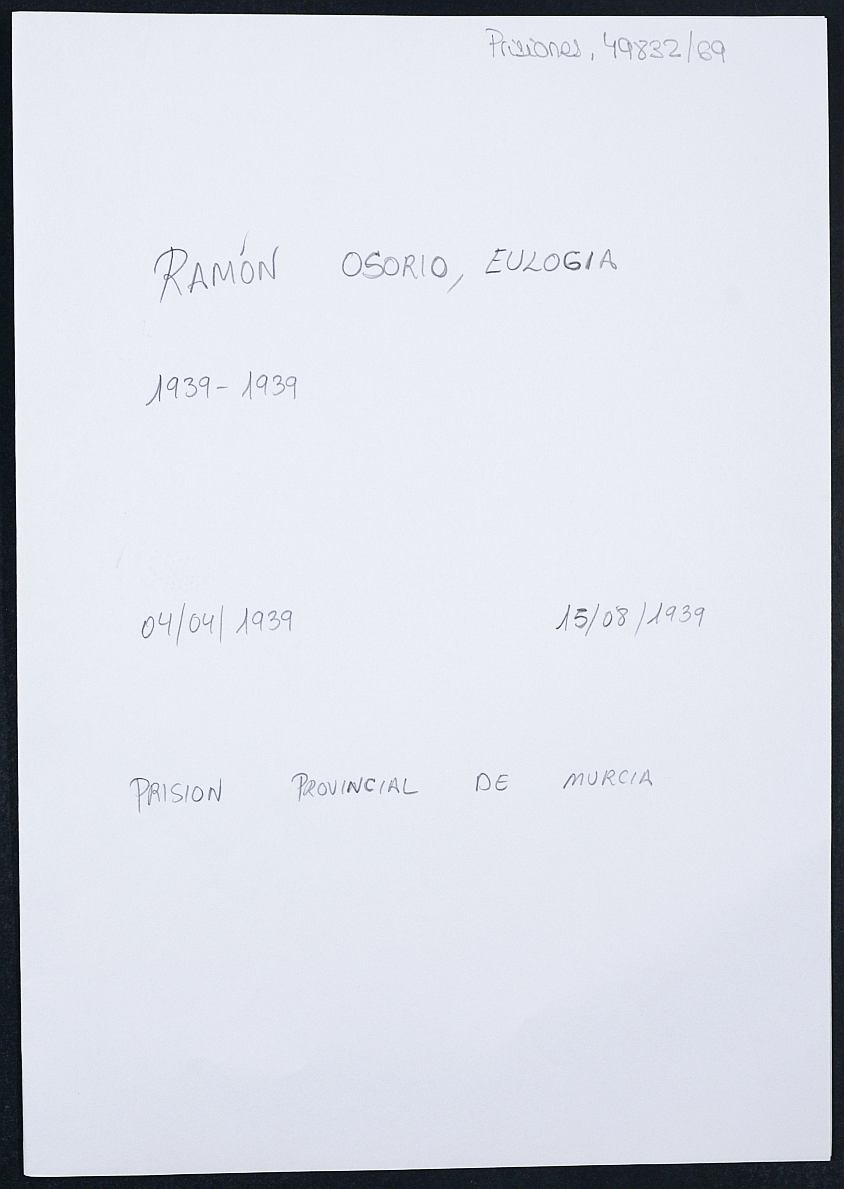 Prisiones, 49832/69
RAMÓN OSORIO, EULOGIA
1939-1939
04/04/1939 15/08/1939
PRISION PROVINCIAL DE MURCIA